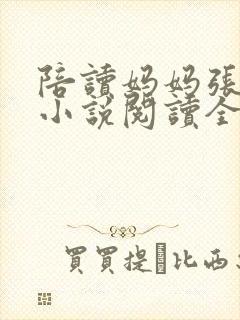 陪讀媽媽張
小說閱讀全
買買提 比西